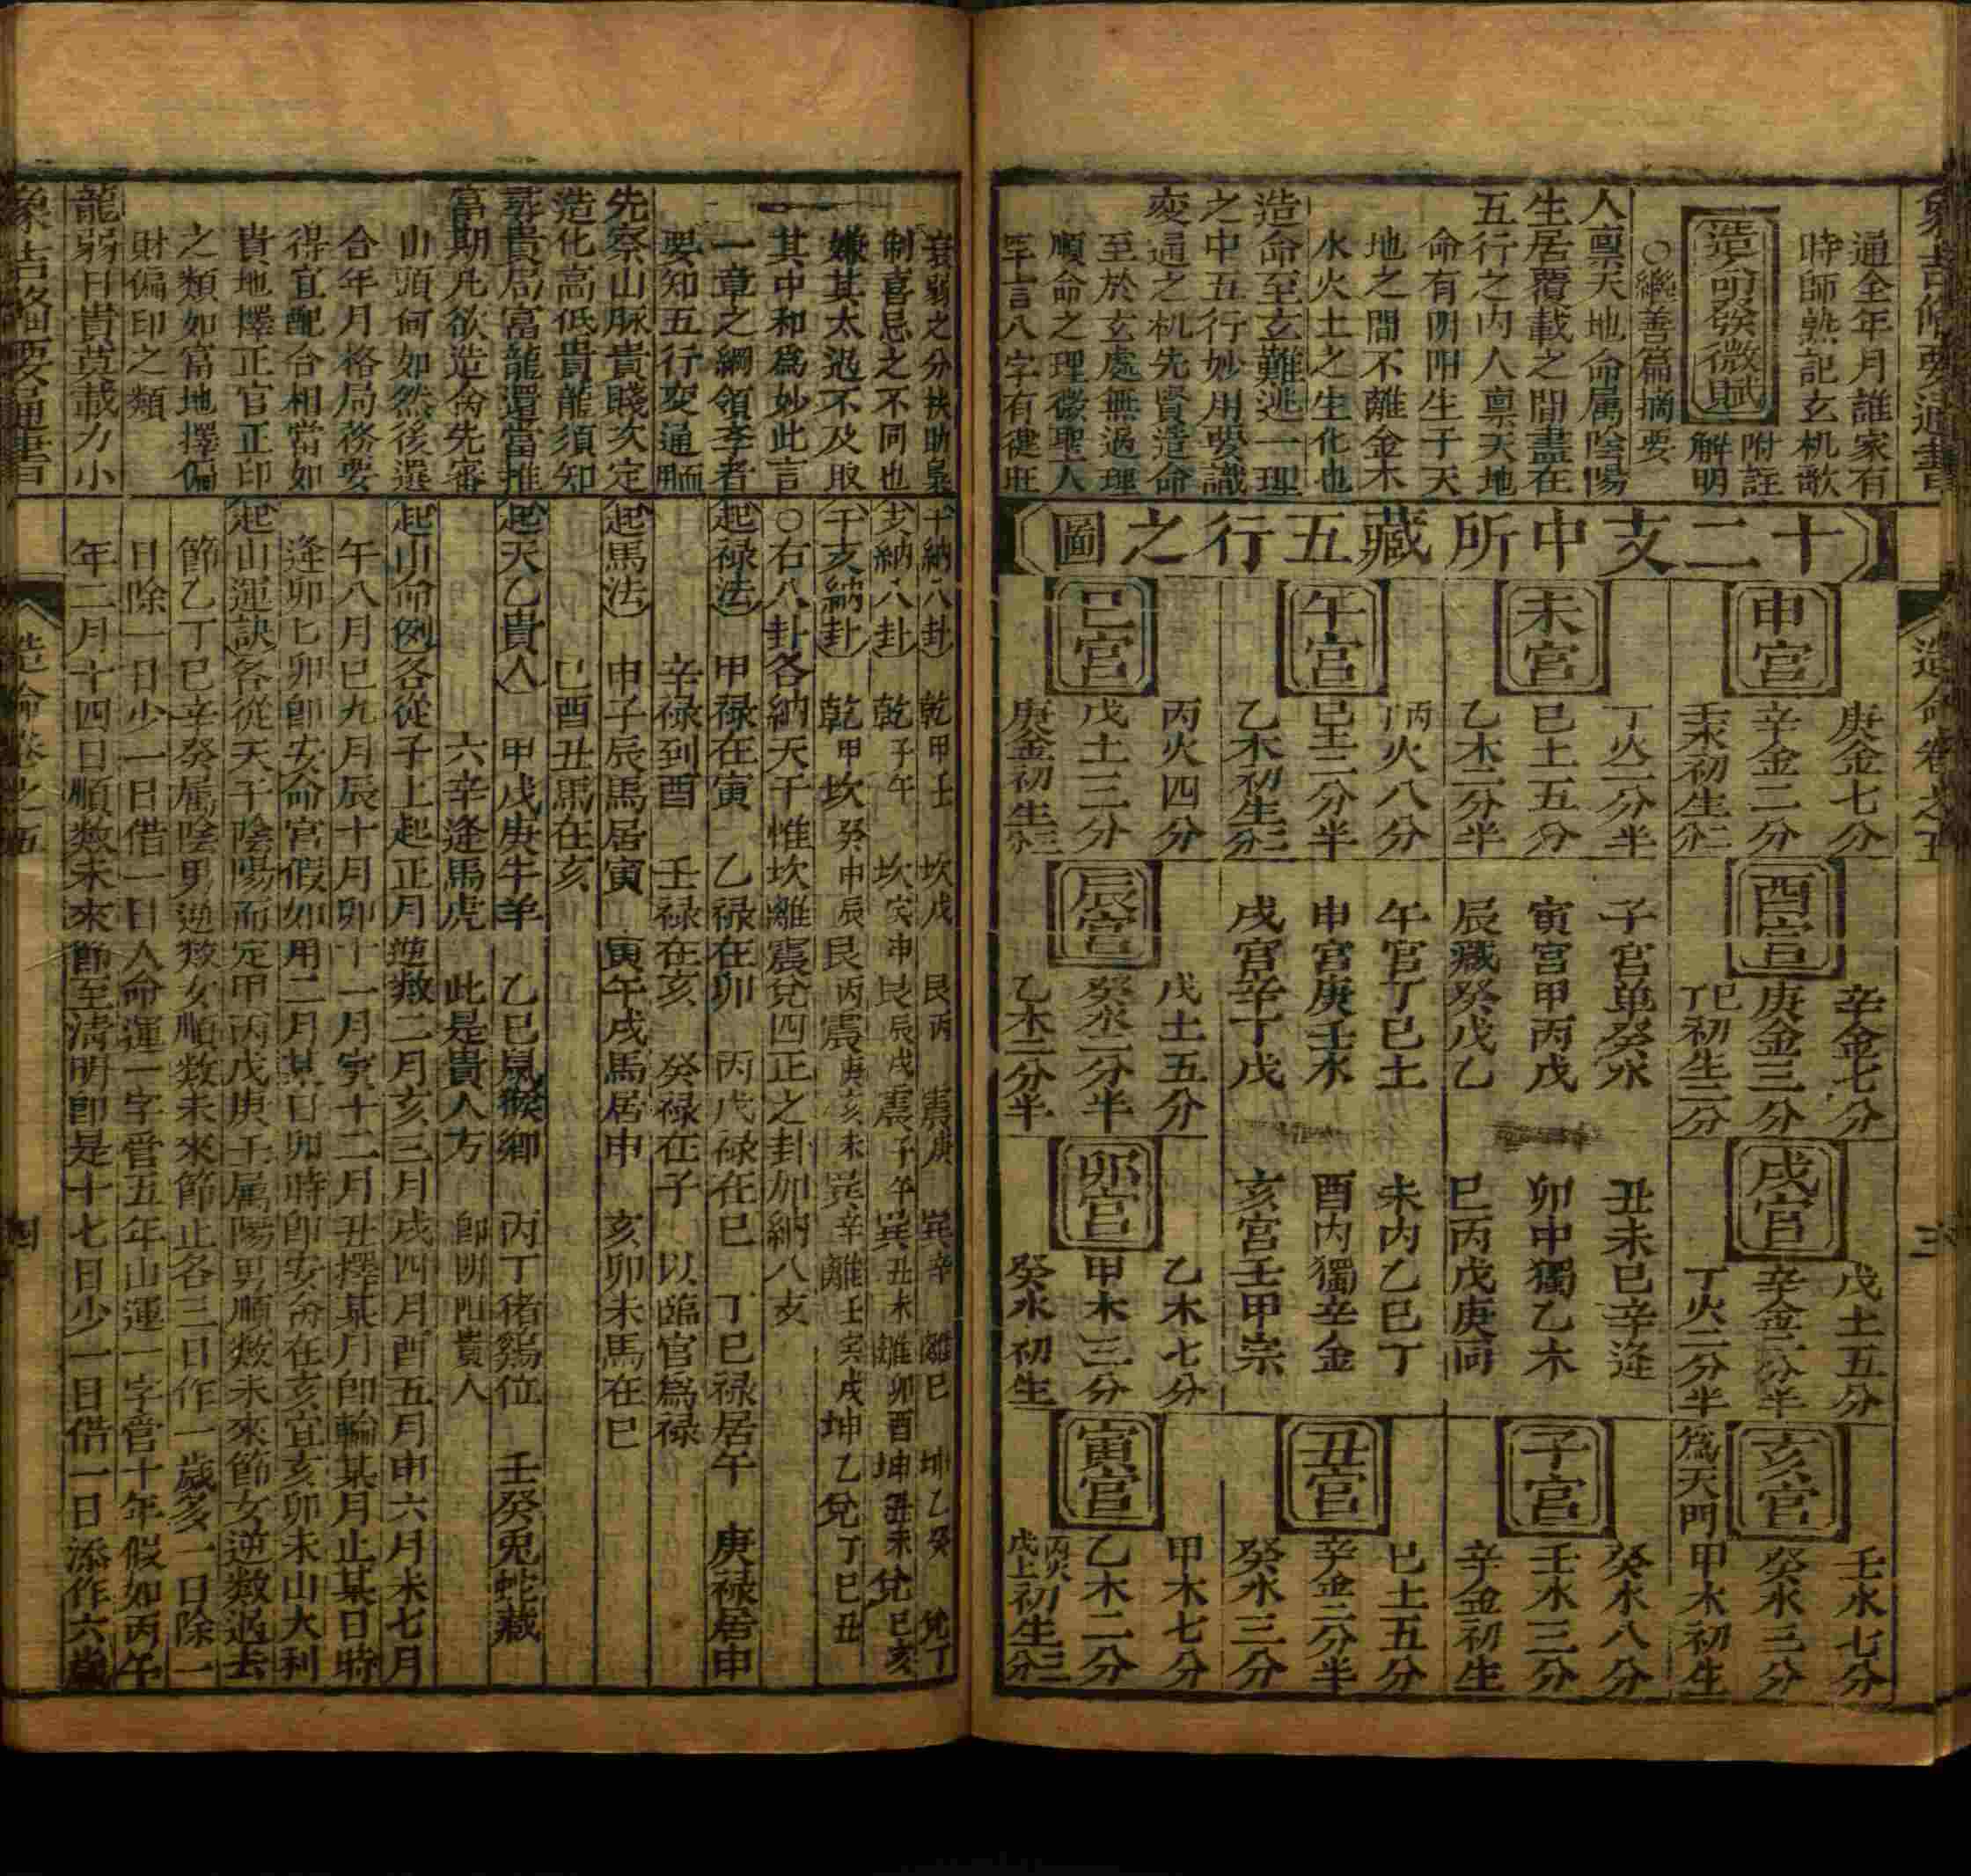 通全年月誰家有
時師熟記玄机歌
造命發微賦
附註
解明
○繼善篇摘要
人禀天地命属陰陽
生居覆載之間盡在
五行之内人禀天地
命有阴阳生于天
地之間不離金木
水火土之生化也
造命至玄難逃一理
之中五行妙用要識
変通之机先賢造命
至於玄處無過理
順命之理微聖人
罕言八字有徤旺
十二支中所藏五行之圖
申宫
庚金七分
辛金二分
壬水初生分二
未宫
丁火二分半
巳土五分
乙木二分半
午宫
丙丁火八分
巳土二分半
乙木初生分三
巳宫
丙火四分
戊土三分
庚金初生分三
酉宫
辛金七分
庚金三分
丁巳初生二分
辰宫
戊土五分
癸水二分半
乙木二分半
子宫单癸水
寅宫甲丙戊
辰藏癸戊乙
午宫丁巳土
申宫庚壬水
戌宫辛丁戊
丑未巳辛逢
卯中獨乙木
巳丙戊庚同
未内乙巳丁
酉内獨辛金
亥宫壬甲宗
戌宫
戊土五分
辛金二分半
丁火二分半
卯宫
乙木七分
甲木三分
癸水初生
亥宫
為天門
壬水七分
癸水三分
甲木初生
子宫
癸水八分
壬水三分
辛金初生
丑宫
巳土五分
辛金二分半
癸水三分
寅宫
甲木七分
乙木二分
丙火戊土初生分三
造命卷之五
三
衰弱之分扶助
制喜忌之不同也
嫌其太過不及取
其中和為妙此言
一章之綱領李者
要知五行変通
先察山脉貴賤次定
造化高低貴龍須知
尋貴局富龍還當推
富期凡欲造命先審
山頭何如然後選
合年月格局務要
得宜配合相當如
貴地擇正官正印
之類如富地擇偏
財偏印之類
龍弱日貴莫載力小
十納八卦 乾甲壬 坎戊 艮丙 震庚 巽辛 離巳 坤乙癸 兌丁
支納八卦 乾子午 坎寅申 艮辰戌 震子午 巽丑未 離卯酉 坤丑未 兌巳亥
干支納卦 乾甲 坎癸申辰 艮丙 震庚亥未 巽辛 離壬寅戌 坤乙 兌丁巳丑
○右八卦各納天干惟坎離震兌四正之卦加納八支
起禄法 甲禄在寅 乙禄在卯 丙戊禄在巳 丁巳禄居午 庚禄居申
辛禄到酉 壬禄在亥 癸禄在子 以臨官為禄
起馬法 申子辰馬居寅 寅午戌馬居申 亥卯未馬在巳
巳酉丑馬在亥
起天乙貴人 甲戊庚牛羊 乙巳鼠猴鄉 丙丁猪鷄位 壬癸兎蛇藏
六辛逢馬虎 此是貴人方 即阴阳貴人
起山命例各從子上起正月逆数二月亥三月戌四月酉五月申六月未七月
午八月巳九月辰十月卯十一月寅十二月丑擇某月即輪某月止某日時
逢卯匕卯即安命宫假如用二月某日卯時即安命在亥宜亥卯未山大利
起山運訣各從天干陰陽而定甲丙戊庚壬属陽男順数未來節女逆数過去
節乙丁巳辛癸属陰男逆数女順数未來節止各三日作一歲多一日除一
日除一日少一日借一日人命運一字管五年山運一字管十年假如丙午
年二月十四日順数未來節至清明即是十七日少一日借一日添作六歲
造命卷之五
四